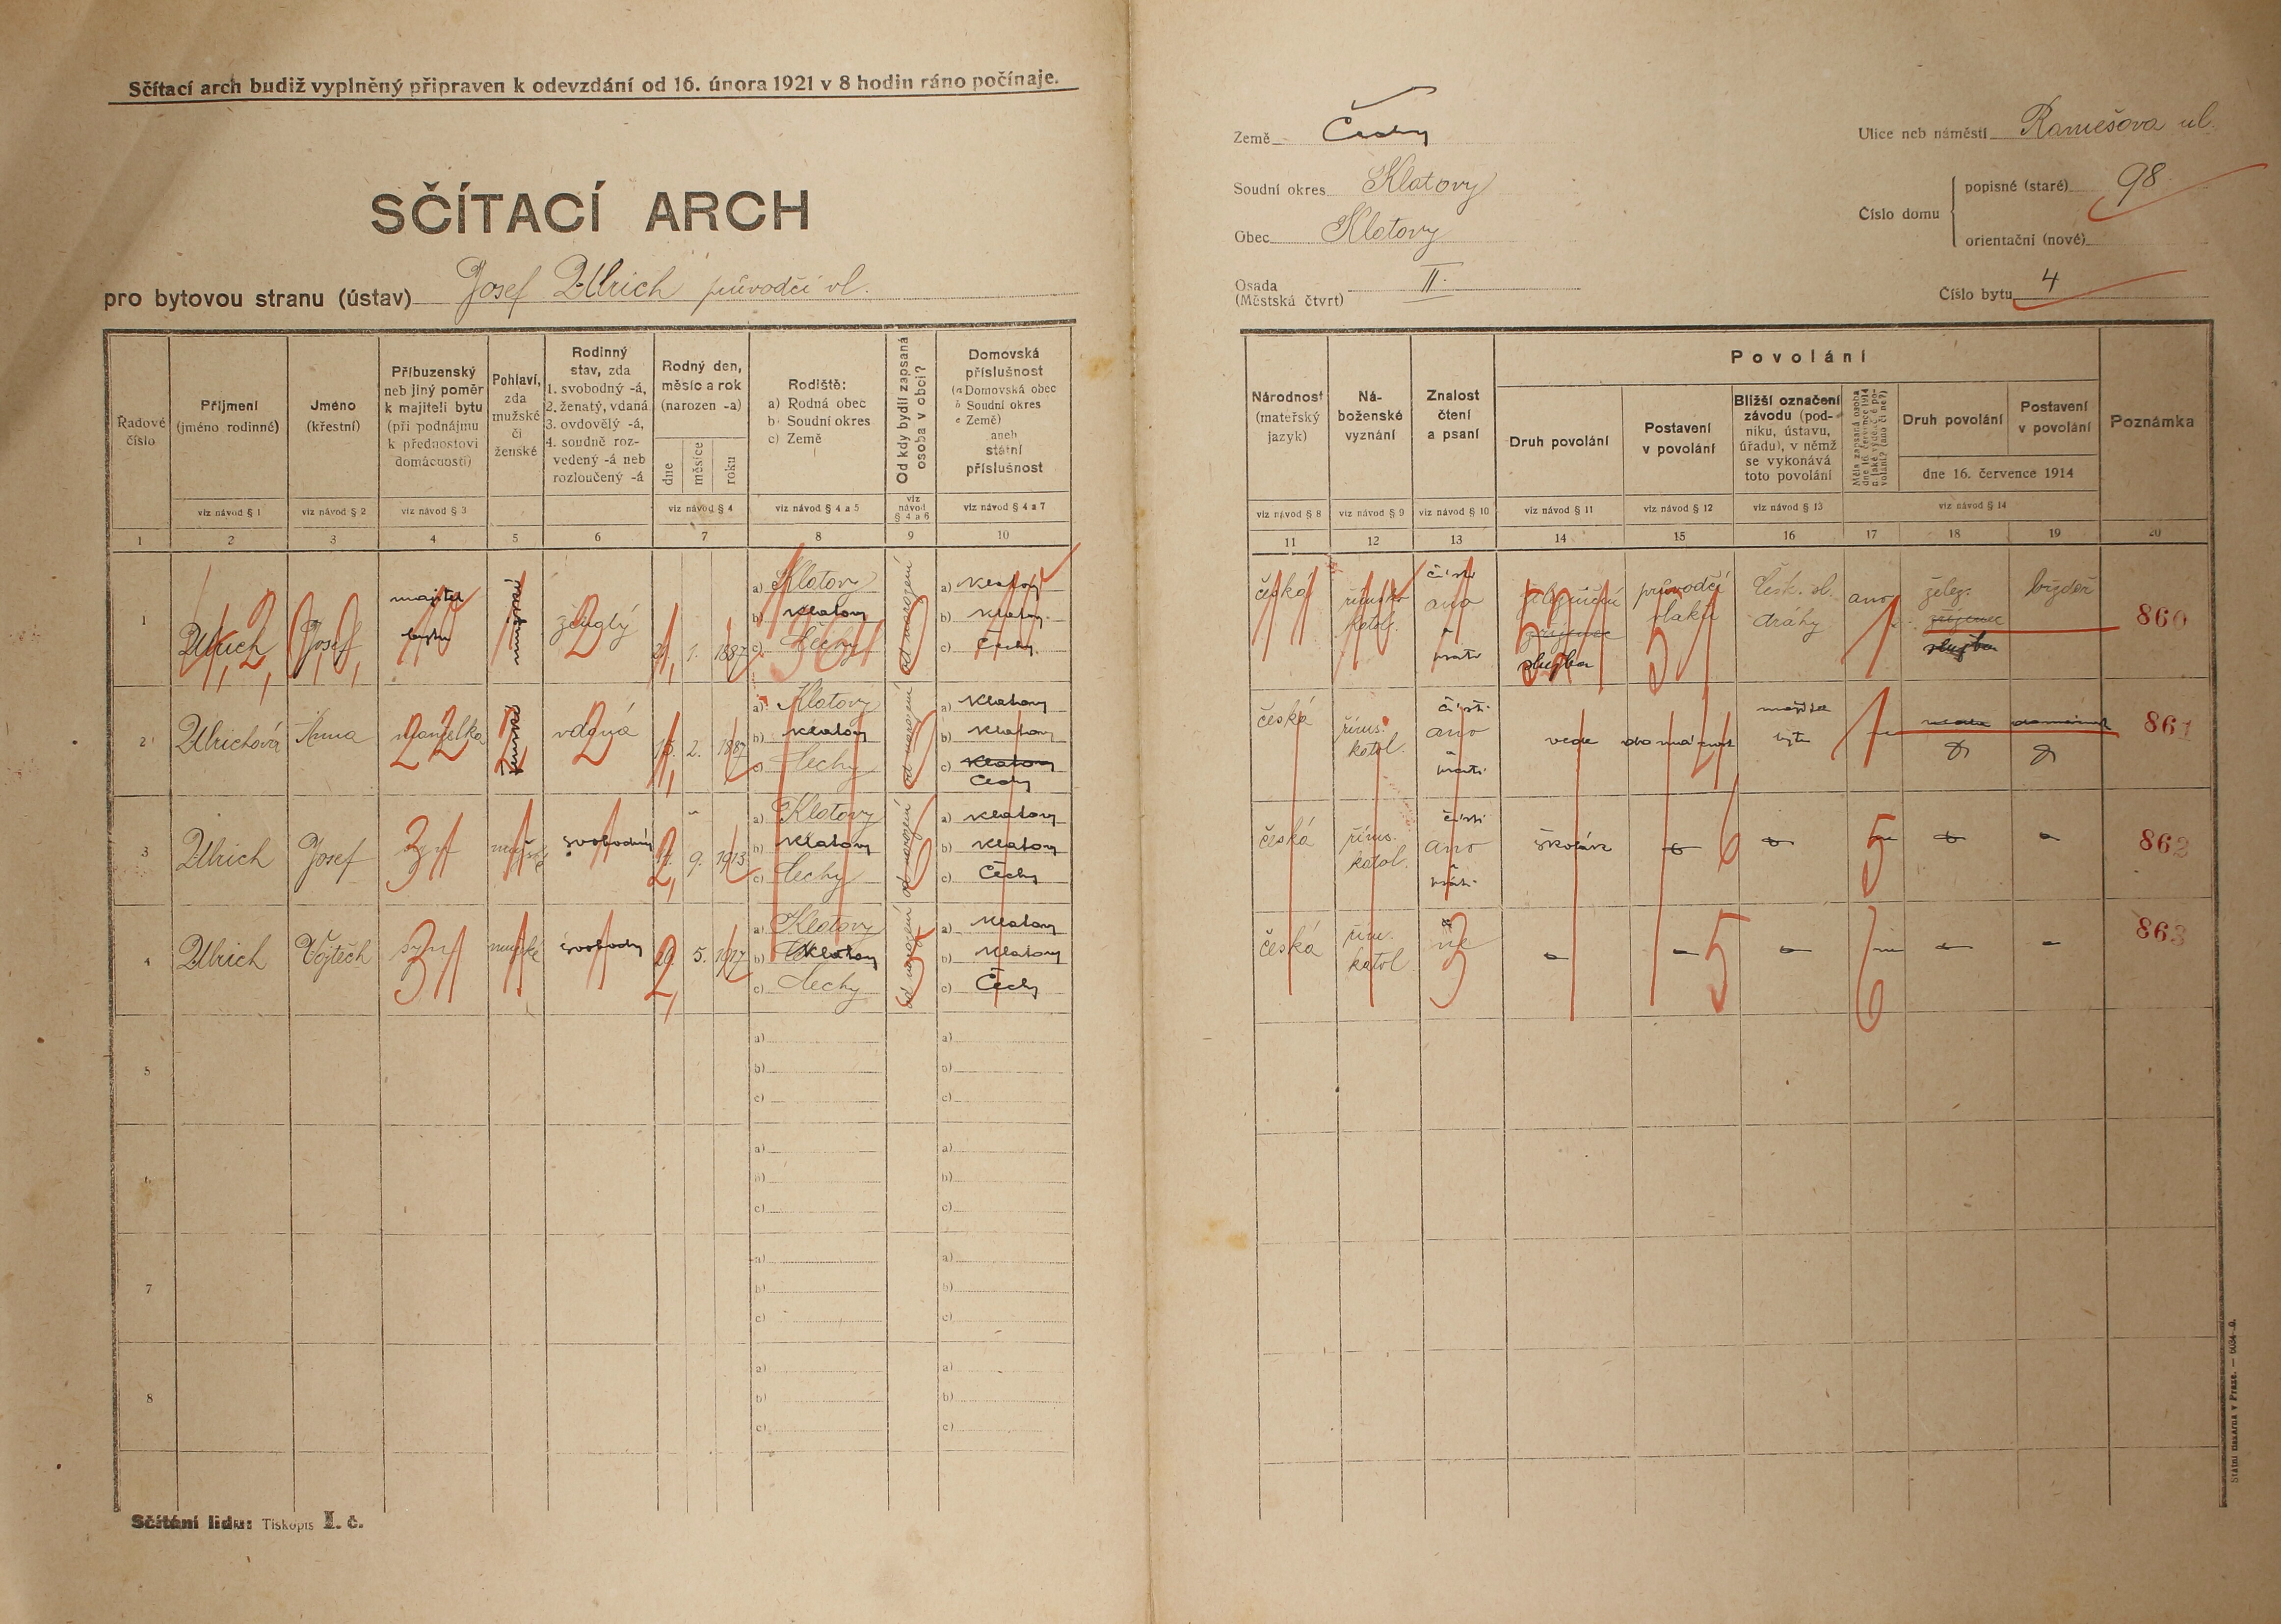 Sčítací arch budiž vyplněný připraven k odevzdání od 16. února 1921 v 8 hodin ráno počínaje.
SČÍTACÍ ARCH
pro bytovou stranu (ústav) Josef Ulrich průvodčí vl.
Země Čechy
Soudní okres Klatovy
Obec Klatovy
Osada (Městská čtvrt) II.
Ulice neb náměstí ul.
Číslo domu
popisné (staré) 98
orientační (nové)
Číslo bytu 4
Řadové číslo
Příjmení (jméno rodinné)
Jméno (křestní)
Příbuzenský neb jiný poměr k majiteli bytu (při podnájmu k přednostovi domácnosti)
Pohlaví, zda mužské či ženské
Rodinný stav, zda
1. svobodný -á,
2. ženatý, vdaná
3. ovdovělý -á,
4. soudně rozvedený -á neb rozloučený -á
Rodný den, měsíc a rok (narozen -a)
dne měsíce roku
Rodiště:
a) Rodná obec
b) Soudní okres
c) Země
Od kdy bydlí zapsaná osoba v obci?
Domovská příslušnost
(a Domovská obec
b Soudní okres
c Země)
aneb
státní příslušnost
viz návod § 1 viz návod § 2 viz návod § 3 viz návod § 4 viz návod § 4 a 5 viz návod § 4 a 6 viz návod § 4 a 7
1 2 3 4 5 6 7 8 9 10
Národnost (mateřský jazyk)
Náboženské vyznání
Znalost čtení a psaní
Povolání
Druh povolání
Postavení v povolání
Bližší označení závodu (podniku, ústavu, úřadu), v němž se vykonává toto povolání
Měla zapsaná osoba dne 16. července 1914 nějaké výdělečné povolání? (ano či ne?)
Druh povolání
Postavení v povolání
dne 16. července 1914
Poznámka
viz návod § 8 viz návod § 9 viz návod § 10 viz návod § 11 viz návod § 12 viz návod § 13 viz návod § 14
11 12 13 14 15 16 17 18 19 20
1 Ulrich Josef majitel bytu mužské 1. 1887
a) Klatovy
b) Klatovy
c) Čechy
od narození
a) Klatovy
b) Klatovy
c) Čechy
česká římsko katol. čísti ano a psáti
služba
průvodčí vlaků
Česk. st. dráhy
ano
želez.
služba
860
2 Ulrichová Anna manželka ženské vdaná 2. 1887
a) Klatovy
b) Klatovy
c) Čechy
od narození
a) Klatovy
b) Klatovy
c) Klatovy
Čechy
česká říms. katol. čísti ano a psáti
vede domácnost
861
3 Ulrich Josef syn mužské svobodný 9. 1913
a) Klatovy
b) Klatovy
c) Čechy
od narození
a) Klatovy
b) Klatovy
c) Čechy
česká říms. katol. čísti ano a psáti
862
4 Ulrich Vojtěch syn mužské svobodný 20. 5. 1917
a) Klatovy
b) Klatovy
c) Čechy
od narození
a) Klatovy
b) Klatovy
c) Čechy
česká řím. katol. ne
863
5
a) a)
b) b)
c) c)
6
a) a)
b) b)
c) c)
7
a) a)
b) b)
c) c)
8
a) a)
b) b)
c) c)
Sčítání lidu: Tiskopis I. č.
Státní tiskárna v Praze.